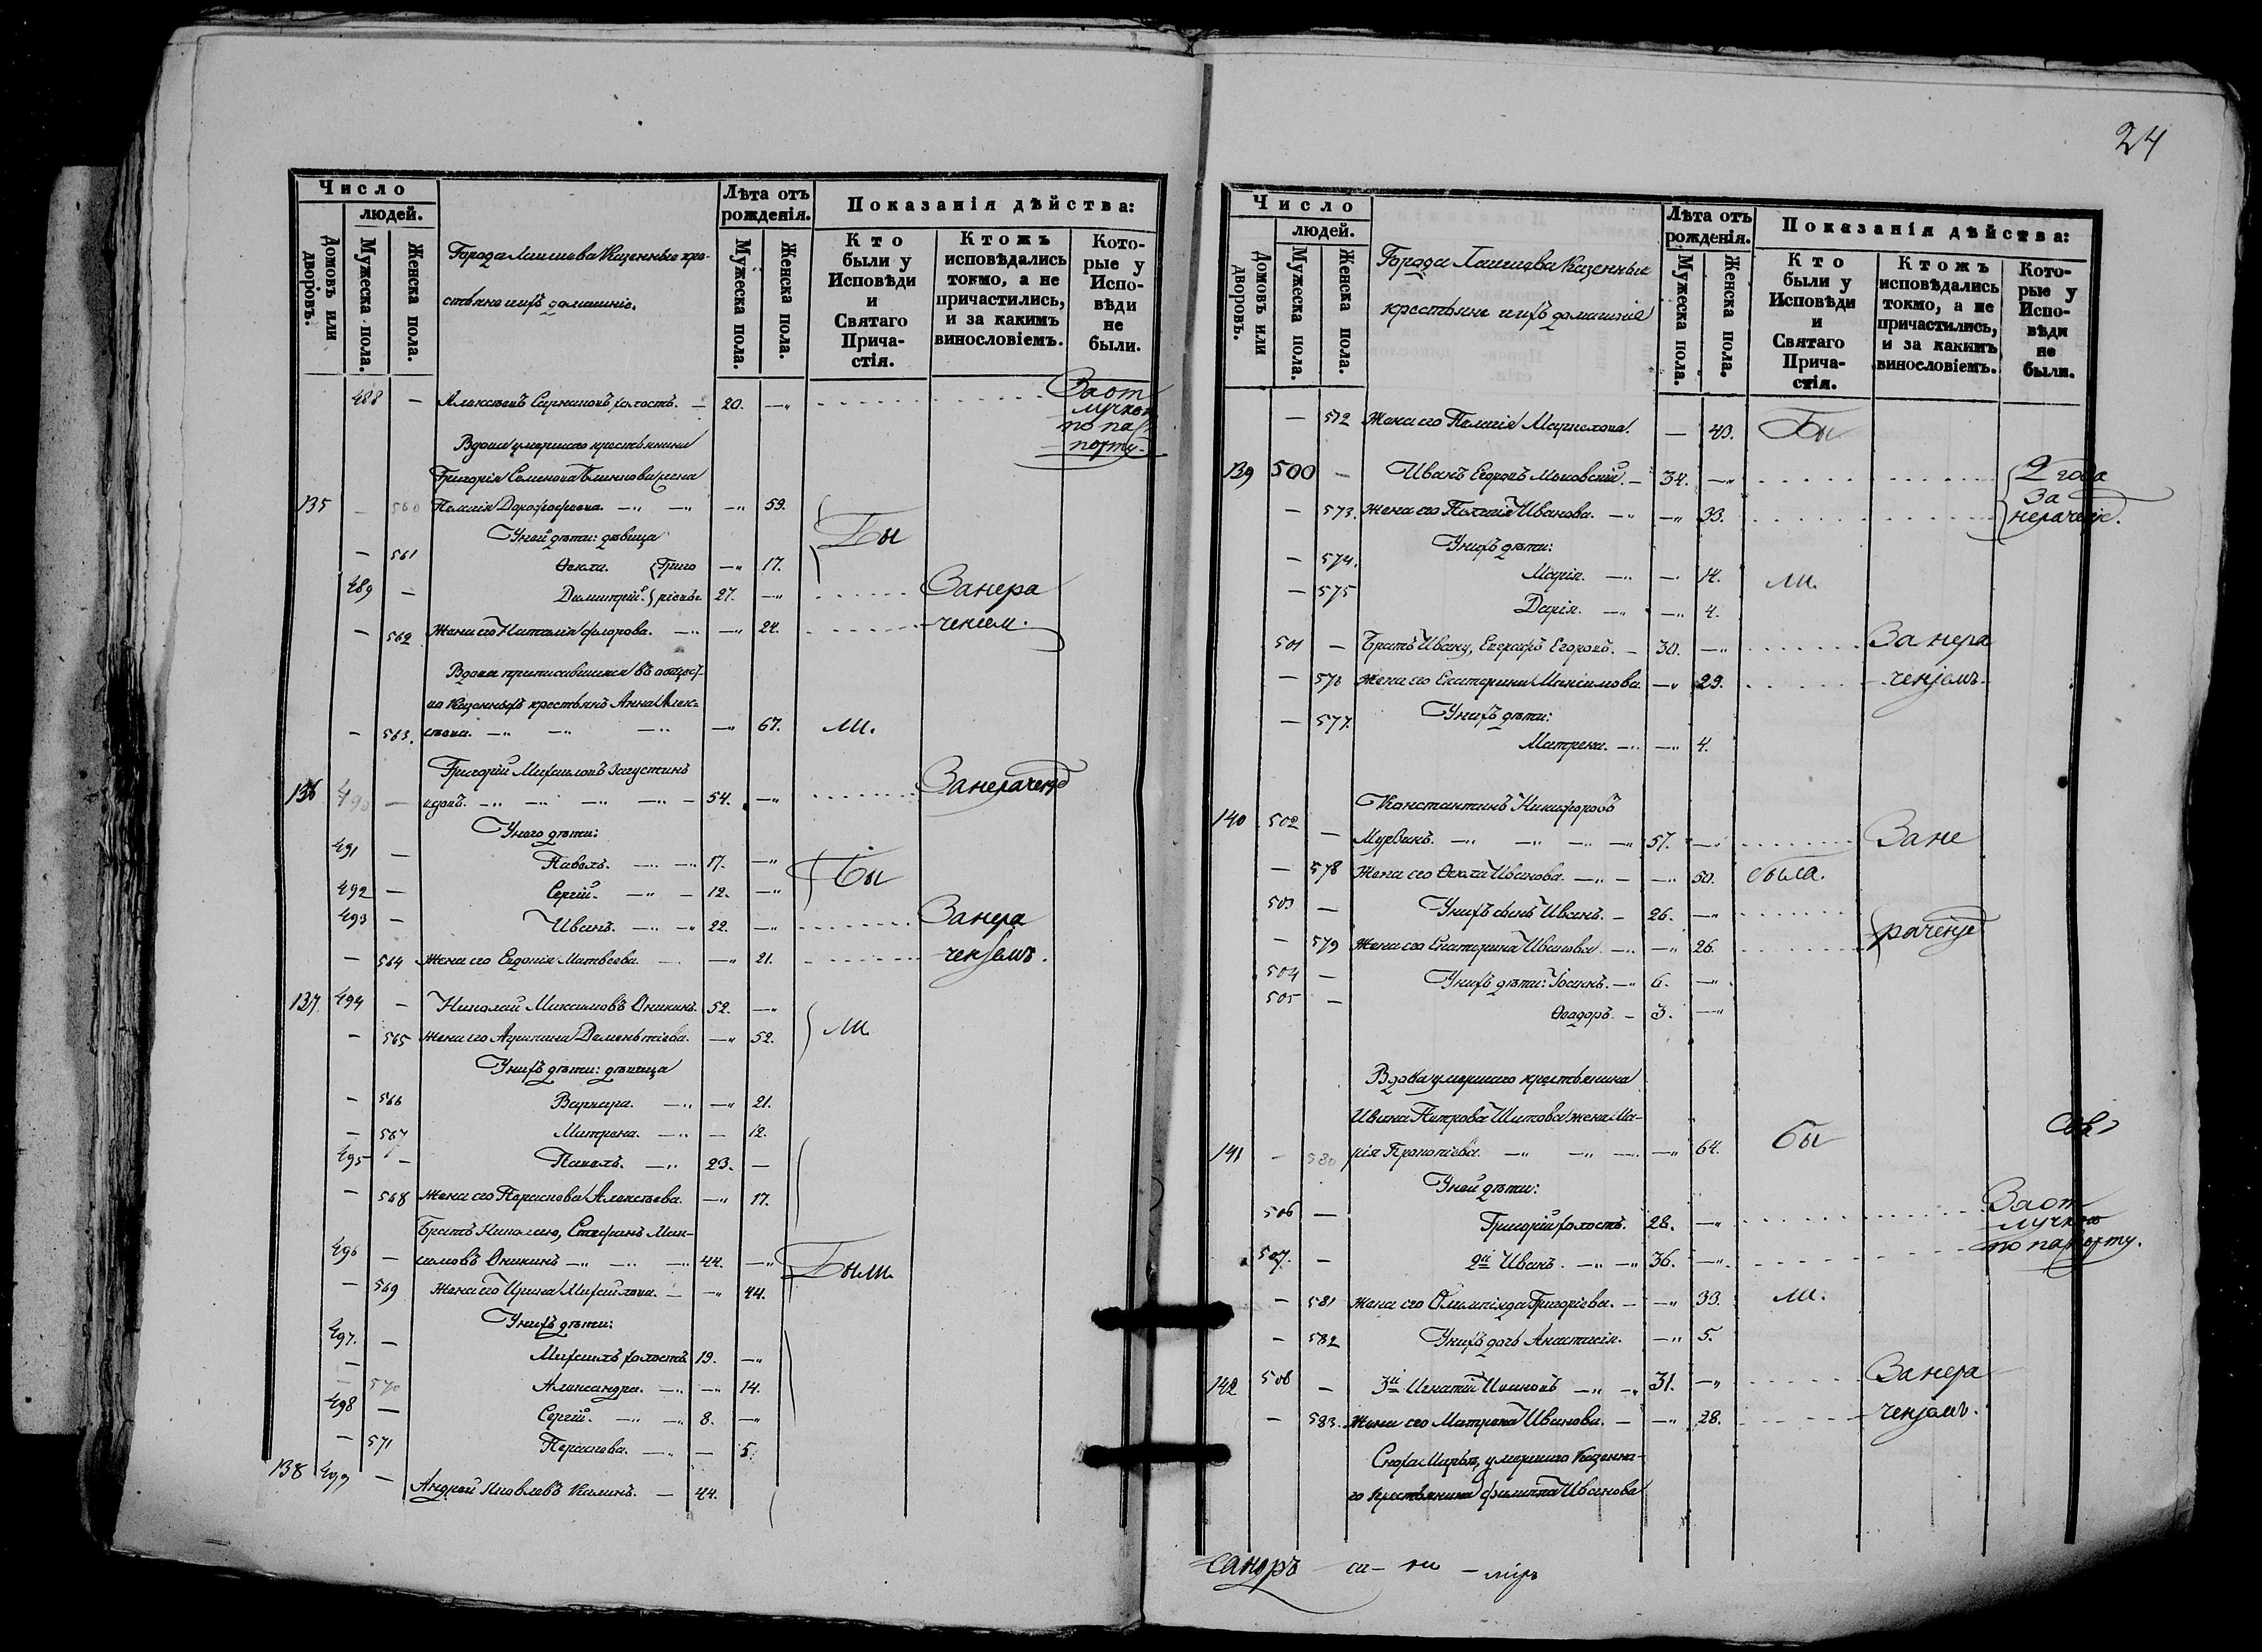 Число
людей.
Домовъ или дворовъ.
Мужеска пола.
Женска пола.
Города Лаишева Казенные кре-
стьяне и ихъ домашніе.
Лѣта отъ рожденія.
Мужеска пола.
Женска пола.
Показанія дѣйства:
Кто были у Исповѣди и Святаго Прича-стія.
Ктожъ исповѣдались токмо, а не причастились, и за какимъ винословіемъ.
Кото-рые у Испо-вѣди не были.
488 — Алексѣй холостъ. — 20. —„ За от
лучкою
по пас
порту
Вдова умершаго крестьянина
Григорія Семенова жена
135 — 560 Пелагія Дорофеева. —„ —„ —„ 59.
У ней дѣти: дѣвица Бы
— 561 Ѳекла. {Григо —„ 17.
489 — Димитрій. }рьевы 27. —„ За нера
— 562 Жена его Наталія Флорова. —„ —„ 24. ченіем.
Вдова приписавшаяся въ общес-
во Казенныхъ крестьянъ Анна Алек-
— 563. сѣева. —„ —„ —„ —„ 67. ли.
Григорій Михаиловъ
136 490 — —„ —„ —„ —„ — 54. —„ За нераченіе
У него дѣти:
491 — Павелъ. —„ —„ 17. —„ Бы
492 — Сергій. —„ — 12. —„
493 — Иванъ. —„ —„ 22. —„ За нера
— 564 Жена его Евдокія Матвеева. —„ —„ 21. ченіемъ.
137 494 — Николай Максимовъ Оникинъ. 52. —„
— 565 Жена его Агрипина Дементіева. —„ 52. ли
У нихъ дѣти: дѣвица
— 566 Варвара. —„ —„ 21.
— 567 Матрена. —„ — 12.
495 — Павелъ. —„ 23. —
— 568 Жена его Параскова Алексѣева. —„ 17.
Братъ Николаю, Стефанъ Мак-
496 — симовъ Оникинъ —„ —„ —„ 44. —„ Были
— 569 Жена его Ирина Михайлова. — —„ 44.
У нихъ дѣти:
497. — Михаилъ холостъ 19. —„
— 570 Александра. —„ —„ 14.
498 — Сергій. —„ —„ 8. —„
— 571 Параскова. —„ — 5.
138 499 — Андрей Яковлевъ Калинъ. — 44.
24
Число
людей.
Домовъ или дворовъ.
Мужеска пола.
Женска пола.
Города Лаишева Казенные
крестьяне и ихъ домашніе
Лѣта отъ рожденія.
Мужеска пола.
Женска пола.
Показанія дѣйства:
Кто были у Исповѣди и Святаго Прича-стія.
Ктожъ исповѣдались токмо, а не причастились, и за какимъ винословіемъ.
Кото-рые у Испо-вѣди не были.
— 572 Жена его Пелагія — 43. Бы
139 500 — Иванъ Егоровъ — 34. —„ 2 года
за
— 573. Жена его Пелагія Иванова. —„ —„ 33. нераченіе.
У нихъ дѣти:
— 574. Марія. —„ —„ 14. ли.
— 575 Дарія. —„ —„ 4.
501 — Братъ Ивану, Евграфъ Егоровъ. — 30. —„ За нера
— 576 Жена его Екатерина Максимова. —„ 29. ченіемъ.
— 577. У нихъ дѣти:
Матрена. —„ —„ 4.
Константинъ Никифоровъ
140 502 — —„ —„ —„ —„ 57. —„ За не
— 578 Жена его Ѳекла Иванова. —„ — —„ 50. была.
503 — У нихъ сынъ Иванъ. — 26. —„
— 579 Жена его Екатерина Иванова —„ —„ 26. раченіе
504 — У нихъ дѣти: Іоаннъ. —„ 6. —„
505 — Ѳеодоръ. — 3. —„
Вдова умершаго крестьянина
Ивана Петрова Шитова жена Ма-
141 — 580 рія Прокопіева. —„ —„ —„ —„ 64. бы
У ней дѣти:
506 — Григорій холостъ. 28. —„ За от
лучкою
507. — 2й Иванъ. —„ —„ 36. —„ по паспорту.
— 581 Жена его Олимпіада Григоріева. — —„ 33. ли.
— 582 У нихъ дочь Анастасія. —„ 5.
142 508 — 3й Игнатій Ивановъ —„ —„ 31. —„ За нера
— 583. Жена его Матрона Иванова. — —„ 28. ченіемъ.
Сноха Марья, умершаго Казенна-
го крестьянина Филиппа Иванова